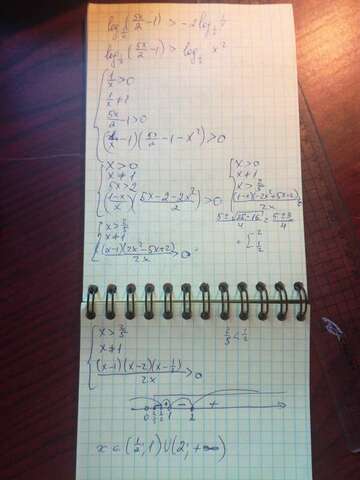 log_{1/x}(5x/2 - 1) > -2 log_{1/x} 1/x
log_{1/x}(5x/2 - 1) > log_{1/x} x²
{ 1/x > 0
1/x ≠ 1
5x/2 - 1 > 0
(1/x - 1)(5x/2 - 1 - x²) > 0
{ x > 0
x ≠ 1
5x > 2
((1-x)/x)((5x - 2 - 2x²)/2) > 0
{ x > 0
x ≠ 1
x > 2/5
(1-x)(-2x²+5x-2)/2x
(5 ± √(25-16))/4 = (5±3)/4
= [ 2
1/2
{ x > 2/5
x ≠ 1
(x-1)(2x²-5x+2)/2x > 0
{ x > 2/5
x ≠ 1
(x-1)(x-2)(x-1/2)/2x > 0
2/5 < 1/2
0 2/5 1/2 1 2
+ - +
x ∈ (1/2; 1) ∪ (2; +∞)